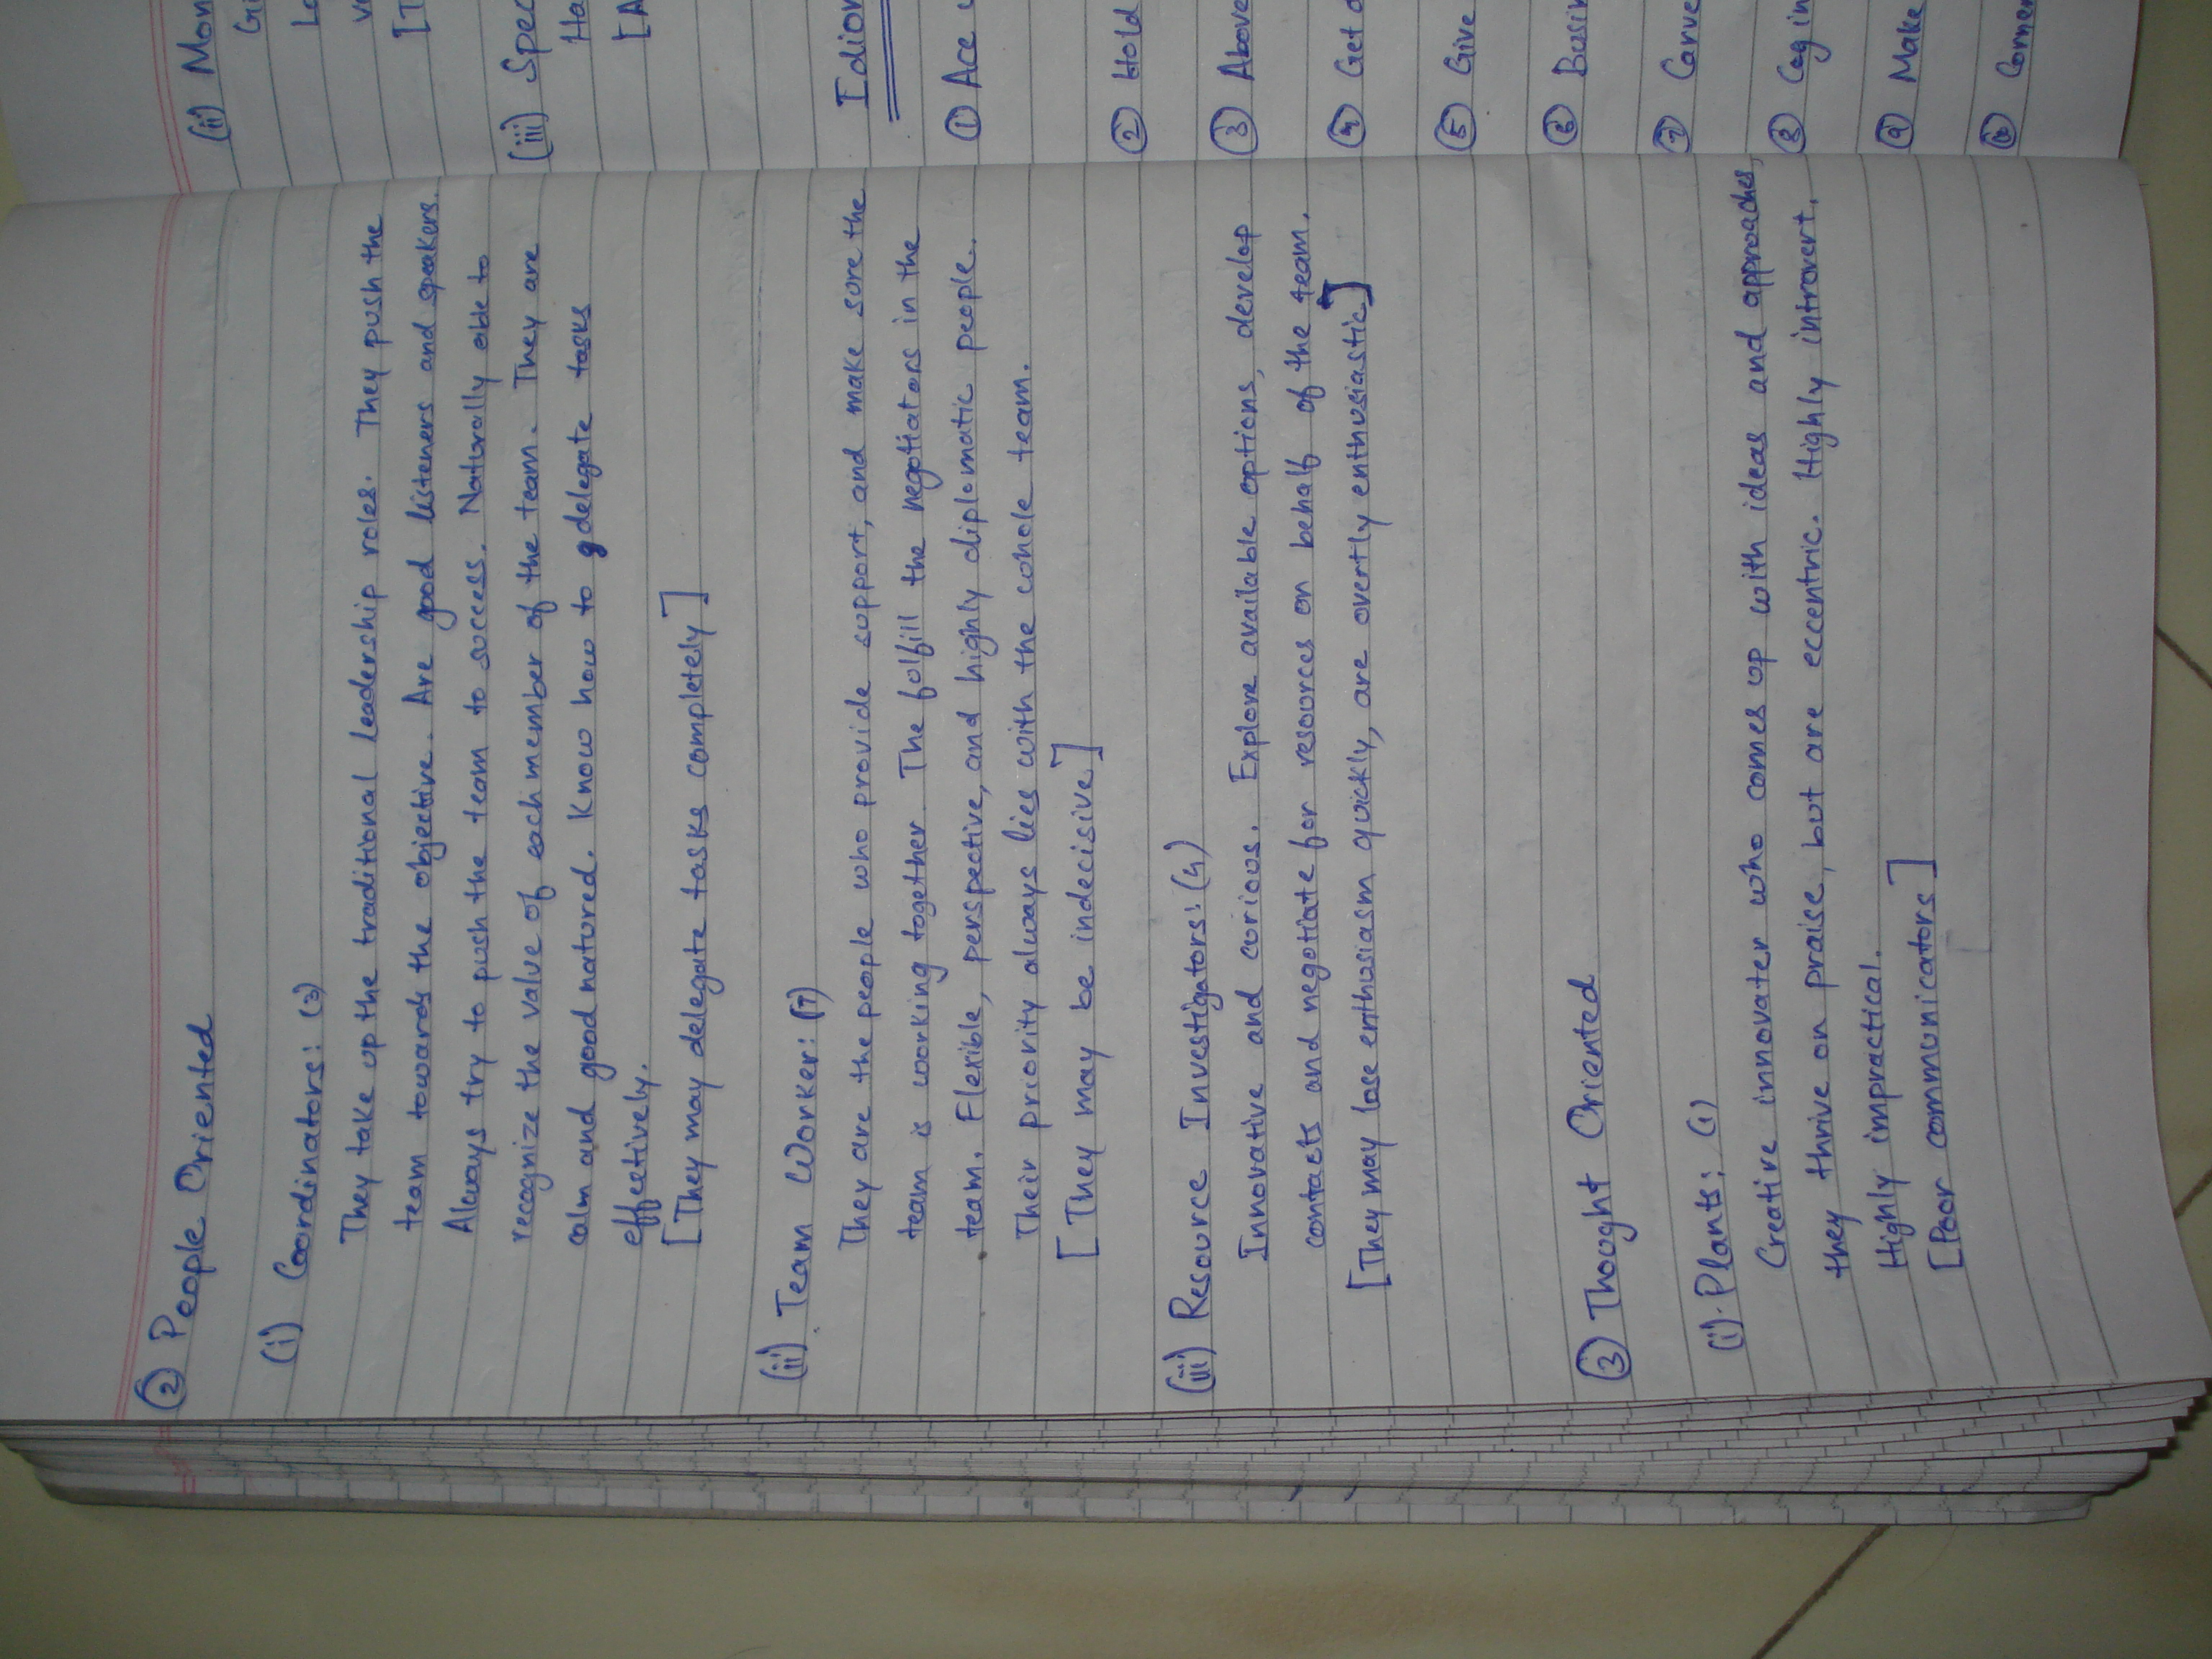 ② People Oriented
(i) Coordinators: (3)
They take up the traditional leadership roles. They push the
team towards the objective. Are good listeners and speakers.
Always try to push the team to success. Naturally able to
recognize the value of each member of the team. They are
calm and good natured. Know how to delegate tasks
effectively.
[They may delegate tasks completely]
(ii) Team Worker: (7)
They are the people who provide support, and make sure the
team is working together. The fulfill the negotiators in the
team. Flexible, perspective, and highly diplomatic people.
Their priority always lies with the whole team.
[They may be indecisive]
(iii) Resource Investigators: (4)
Innovative and curious. Explore available options, develop
contacts and negotiate for resources on behalf of the team.
[They may lose enthusiasm quickly, are overtly enthusiastic]
③ Thought Oriented
(i) Plants: (1)
Creative innovater who comes up with ideas and approaches,
they thrive on praise, but are eccentric. Highly introvert.
Highly impractical.
[Poor communicators]
(ii) Mon
Gi
Lo
[T
(iii) Spec
Ha
[A
Idiom
① Ace
② Hold
③ Above
④ Get
⑤ Give
⑥ Busin
⑦ Carve
⑧ Cog in
⑨ Make
⑩ Corner